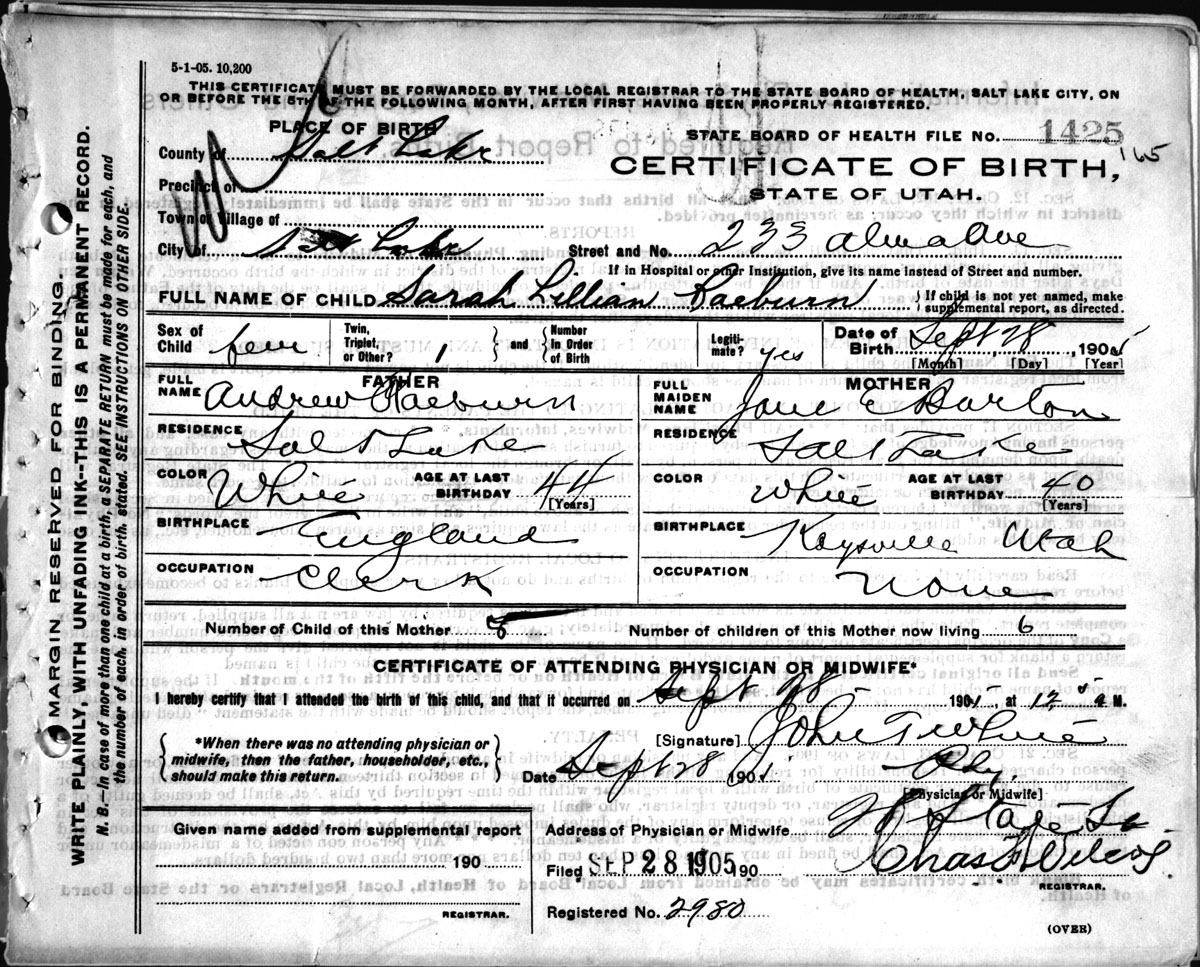 5-1-05. 10,200
THIS CERTIFICATE MUST BE FORWARDED BY THE LOCAL REGISTRAR TO THE STATE BOARD OF HEALTH, SALT LAKE CITY, ON
OR BEFORE THE 5TH OF THE FOLLOWING MONTH, AFTER FIRST HAVING BEEN PROPERLY REGISTERED.
PLACE OF BIRTH
STATE BOARD OF HEALTH FILE No. 1425
165
County of Salt Lake
CERTIFICATE OF BIRTH,
Precinct of
STATE OF UTAH.
Town or Village of
City of Salt Lake Street and No. 233 Alma Ave
If in Hospital or other Institution, give its name instead of Street and number.
FULL NAME OF CHILD Sarah Lillian Raeburn { If child is not yet named, make supplemental report, as directed.
Sex of Child fem Twin, Triplet, or Other? 1 { and } Number in Order of Birth Legitimate? yes Date of Birth Sept 28, 1905
[Month] [Day] [Year]
FATHER
FULL NAME Andrew Raeburn
MOTHER
FULL MAIDEN NAME Jane E Barton
RESIDENCE Salt Lake
RESIDENCE Salt Lake
COLOR White AGE AT LAST BIRTHDAY 44 [Years]
COLOR White AGE AT LAST BIRTHDAY 40 [Years]
BIRTHPLACE England
BIRTHPLACE Kaysville Utah
OCCUPATION Clerk
OCCUPATION None
Number of Child of this Mother 8 Number of children of this Mother now living 6
CERTIFICATE OF ATTENDING PHYSICIAN OR MIDWIFE*
I hereby certify that I attended the birth of this child, and that it occurred on Sept 28 1905, at 12 a M.
{ *When there was no attending physician or midwife, then the father, householder, etc., should make this return. }
[Signature] John T White
Date Sept 28 1905. Phy.
[Physician or Midwife]
Given name added from supplemental report
190
REGISTRAR.
Address of Physician or Midwife
Filed SEP 28 1905 190 Chas F Wilcox
REGISTRAR.
Registered No. 2980
(OVER)
MARGIN RESERVED FOR BINDING.
WRITE PLAINLY, WITH UNFADING INK--THIS IS A PERMANENT RECORD.
N. B.—In case of more than one child at a birth, a SEPARATE RETURN must be made for each, and
the number of each, in order of birth, stated. SEE INSTRUCTIONS ON OTHER SIDE.